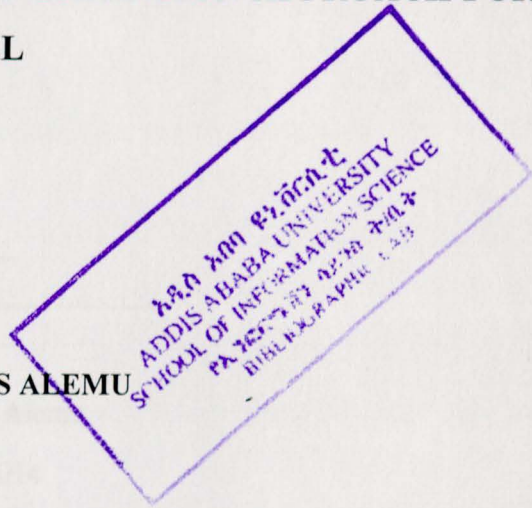 L
አዲስ አበባ ዩኒቨርሲቲ
ADDIS ABABA UNIVERSITY
SCHOOL OF INFORMATION SCIENCE
የኢንፎርሜሽን ሳይንስ ትም/ት
BIBLIOGRAPHIC LAB
S ALEMU